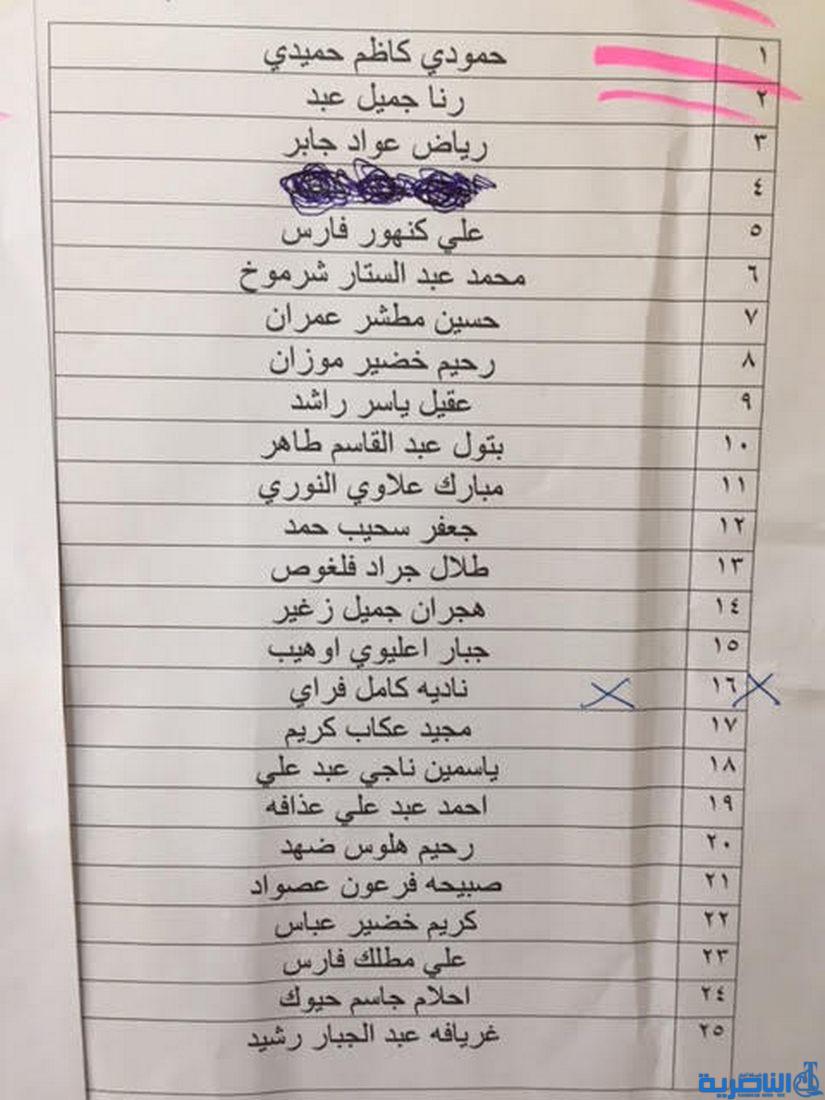 ١ حمودي كاظم حميدي
٢ رنا جميل عبد
٣ رياض عواد جابر
٤
٥ علي كنهور فارس
٦ محمد عبد الستار شرموخ
٧ حسين مطشر عمران
٨ رحيم خضير موزان
٩ عقيل ياسر راشد
١٠ بتول عبد القاسم طاهر
١١ مبارك علاوي النوري
١٢ جعفر سحيب حمد
١٣ طلال جراد فلغوص
١٤ هجران جميل زغير
١٥ جبار اعليوي اوهيب
١٦ ناديه كامل فراي
١٧ مجيد عكاب كريم
١٨ ياسمين ناجي عبد علي
١٩ احمد عبد علي عذافه
٢٠ رحيم هلوس ضهد
٢١ صبيحه فرعون عصواد
٢٢ كريم خضير عباس
٢٣ علي مطلك فارس
٢٤ احلام جاسم حيوك
٢٥ غريافه عبد الجبار رشيد
الناصرية